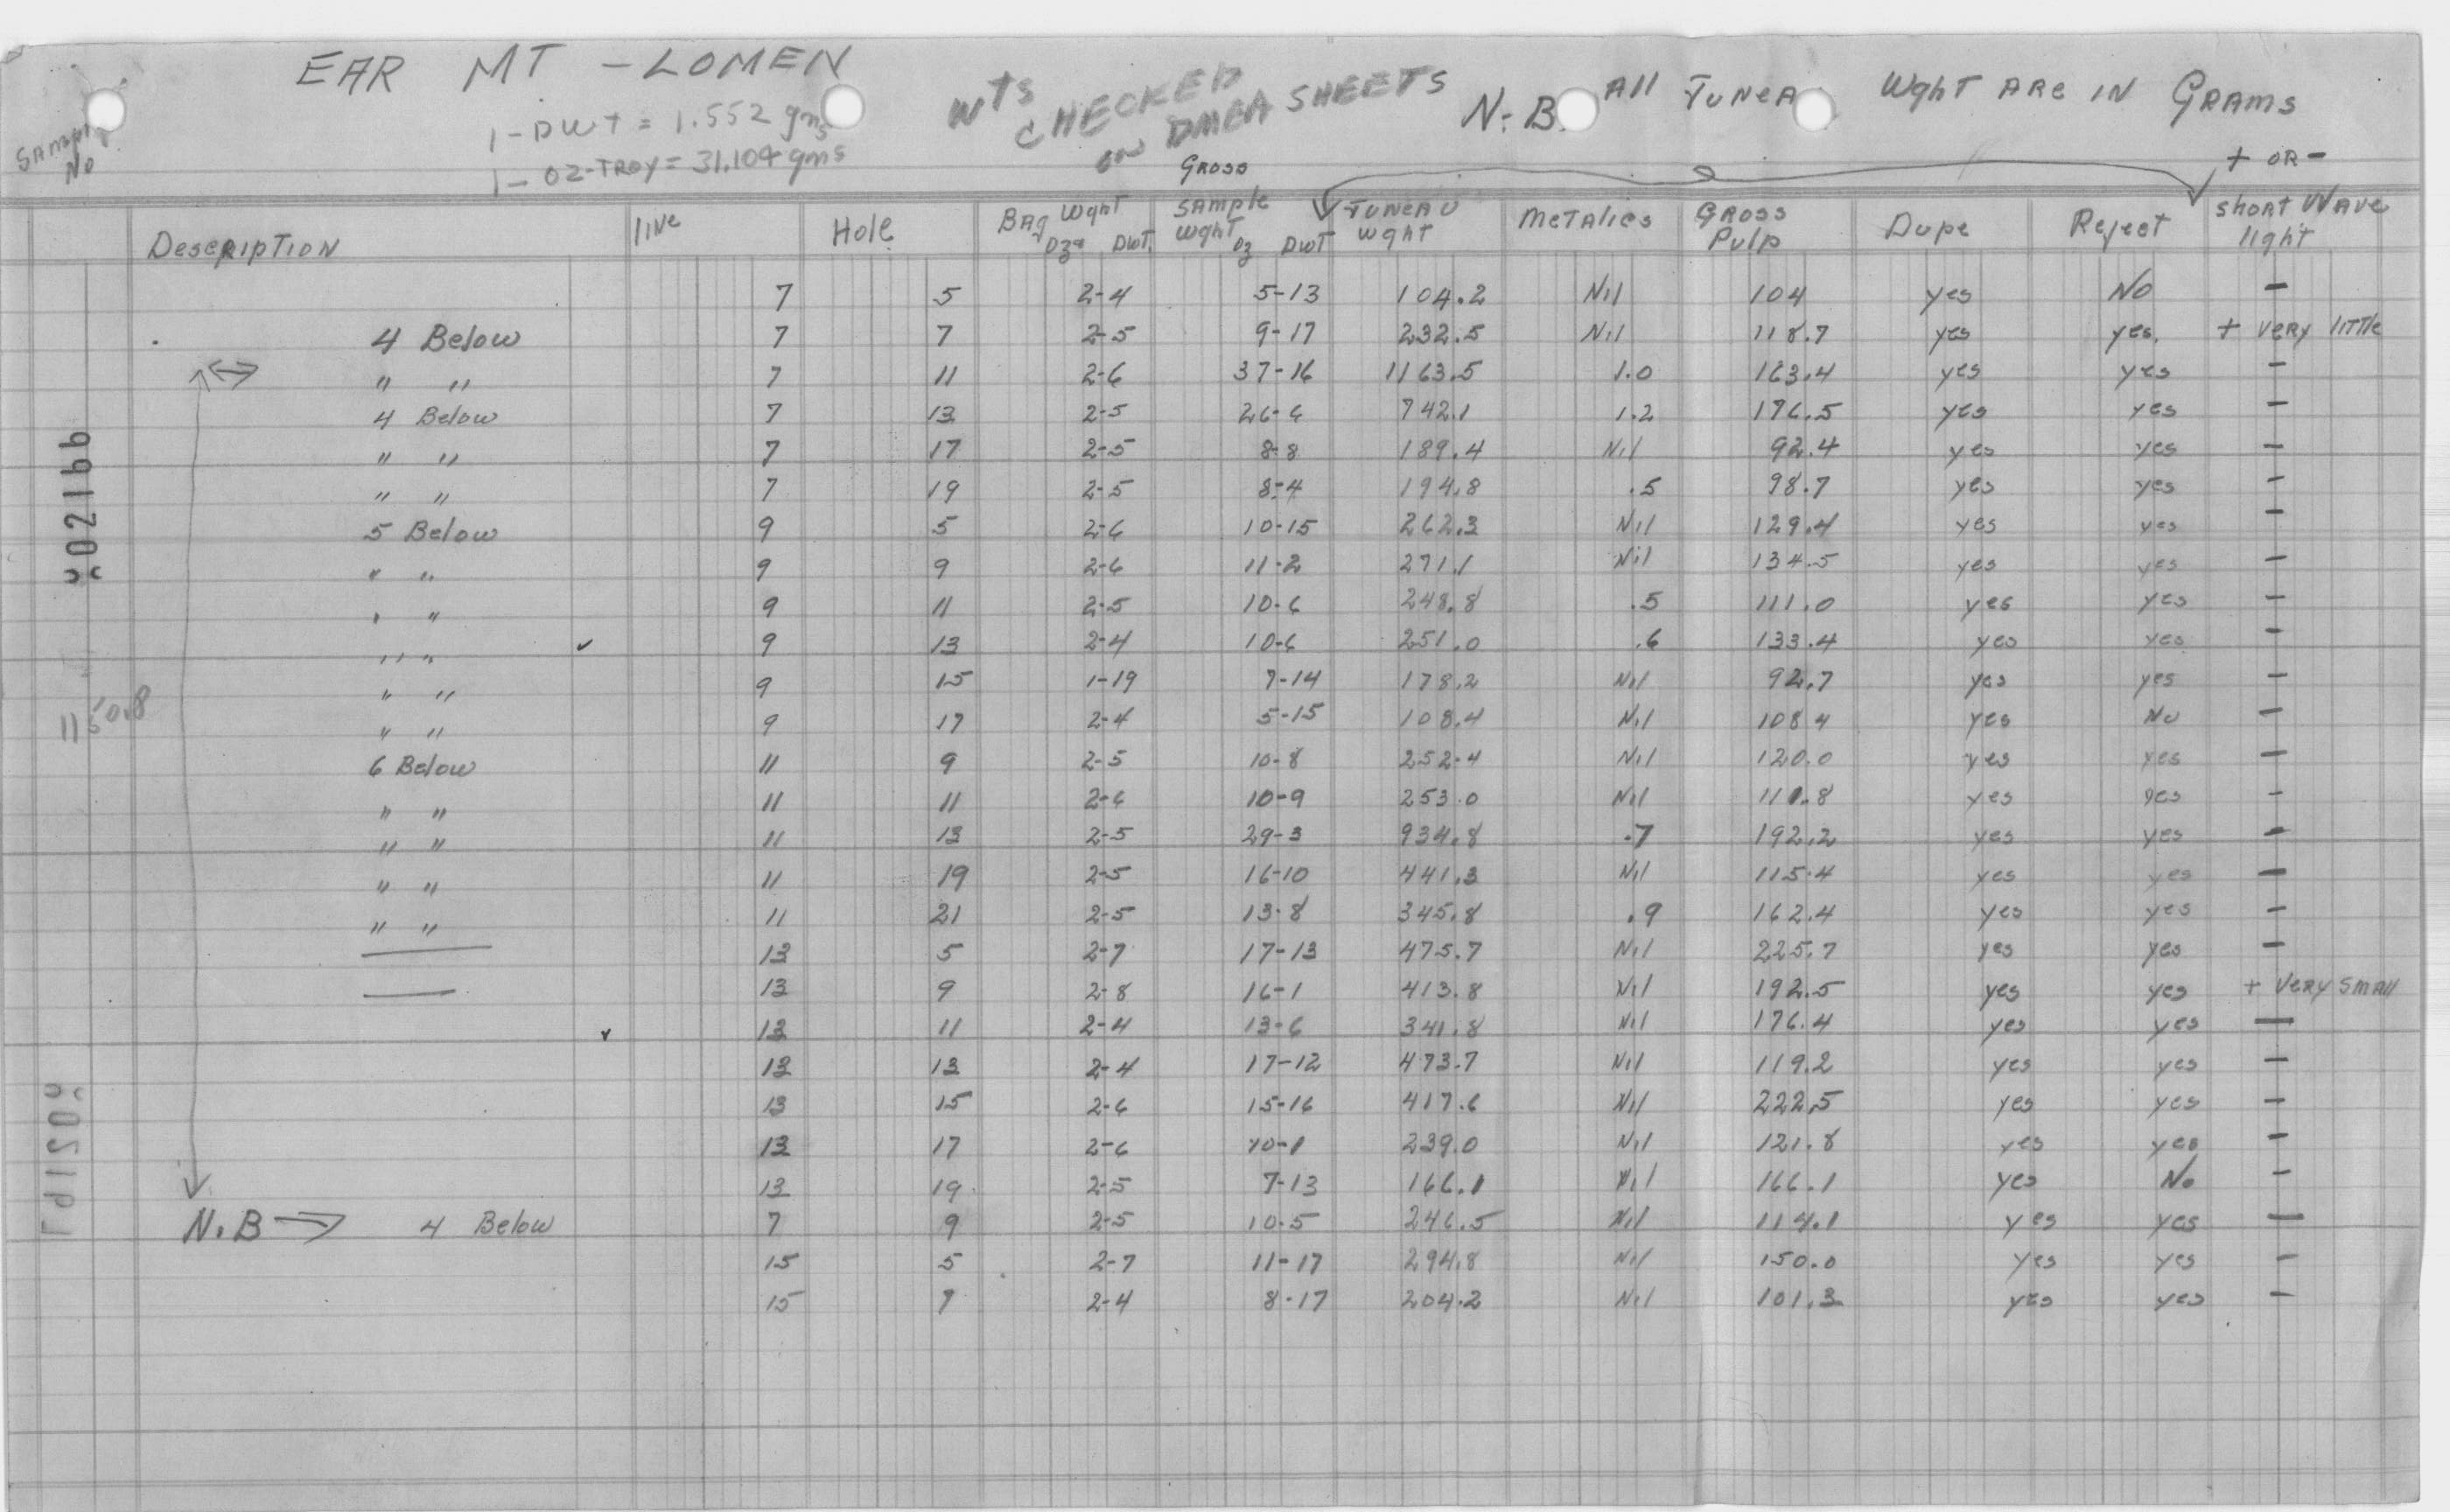 EAR MT - LOMEN
1 - DWT = 1.552 gms
1 - OZ-TROY = 31.104 gms
WTS CHECKED ON DMEA SHEETS
N.B. All JUNEA Wght ARE IN GRAMS
+ OR -
Sample No
Description line Hole Bag Wght Ozs DWT. GROSS SAMPLE Wght Oz DWT JUNEAU Wght METALICS GROSS Pulp Dupe Reject short WAVE light
7 5 2-4 5-13 104.2 Nil 104 yes No -
4 Below 7 7 2-5 9-17 232.5 Nil 118.7 yes yes. + VERY little
" " 7 11 2-6 37-16 1163.5 1.0 163.4 yes yes -
4 Below 7 13 2-5 26-6 742.1 1.2 176.5 yes yes -
" " 7 17 2-5 8-8 189.4 Nil 92.4 yes yes -
" " 7 19 2-5 8-4 194.8 .5 98.7 yes yes -
5 Below 9 5 2-6 10-15 262.3 Nil 129.4 yes yes -
" " 9 9 2-6 11-2 271.1 Nil 134.5 yes yes -
" " 9 11 2-5 10-6 248.8 .5 111.0 yes yes -
" " ✓ 9 13 2-4 10-6 251.0 .6 133.4 yes yes -
" " 9 15 1-19 7-14 178.2 Nil 92.7 yes yes -
" " 9 17 2-4 5-15 108.4 Nil 108 4 yes No -
6 Below 11 9 2-5 10-8 252.4 Nil 120.0 yes yes -
" " 11 11 2-6 10-9 253.0 Nil 111.8 yes yes -
" " 11 13 2-5 29-3 934.8 .7 192.2 yes yes -
" " 11 19 2-5 16-10 441.3 Nil 115.4 yes yes -
" " 11 21 2-5 13-8 345.8 .9 162.4 yes yes -
— 13 5 2-7 17-13 475.7 Nil 225.7 yes yes -
— 13 9 2-8 16-1 413.8 Nil 192.5 yes yes + VERY SMALL
✓ 13 11 2-4 13-6 341.8 Nil 176.4 yes yes -
13 13 2-4 17-12 473.7 Nil 119.2 yes yes -
13 15 2-6 15-16 417.6 Nil 222.5 yes yes -
13 17 2-6 10-1 239.0 Nil 121.8 yes yes -
13 19 2-5 7-13 166.1 Nil 166.1 yes No -
N.B → 4 Below 7 9 2-5 10-5 246.5 Nil 114.1 yes yes -
15 5 2-7 11-17 294.8 Nil 150.0 yes yes -
15 7 2-4 8-17 204.2 Nil 101.3 yes yes -